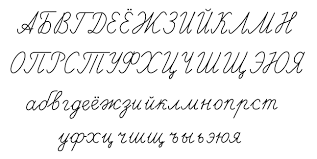 АБВГДЕЁЖЗИЙКЛМН
ОПРСТУФХЦЧШЩЭЮЯ
абвгдеёжзийклмнопрст
уфхцчшщъыьэюя